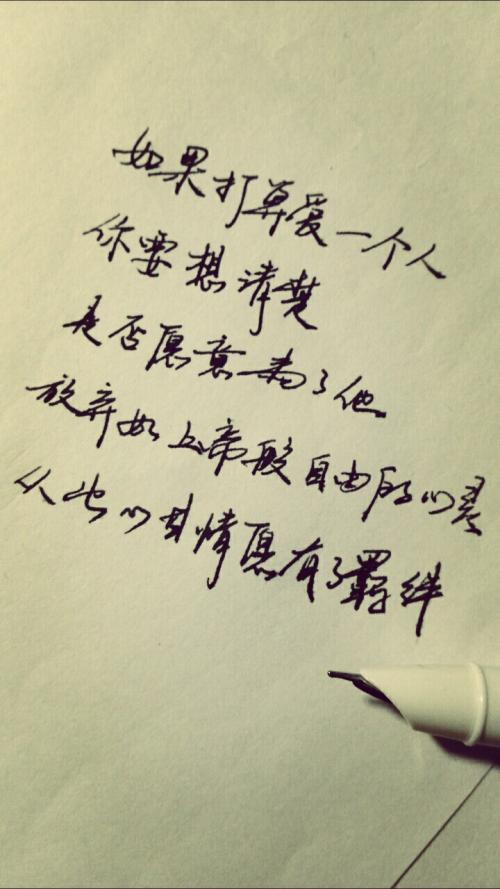 如果打算爱一个人
你要想清楚
是否愿意为了他
放弃如上帝般自由的心灵
从此心甘情愿有了羁绊